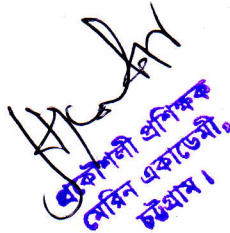 প্রকৌশলী প্রশিক্ষক
মেরিন একাডেমী,
চট্টগ্রাম।